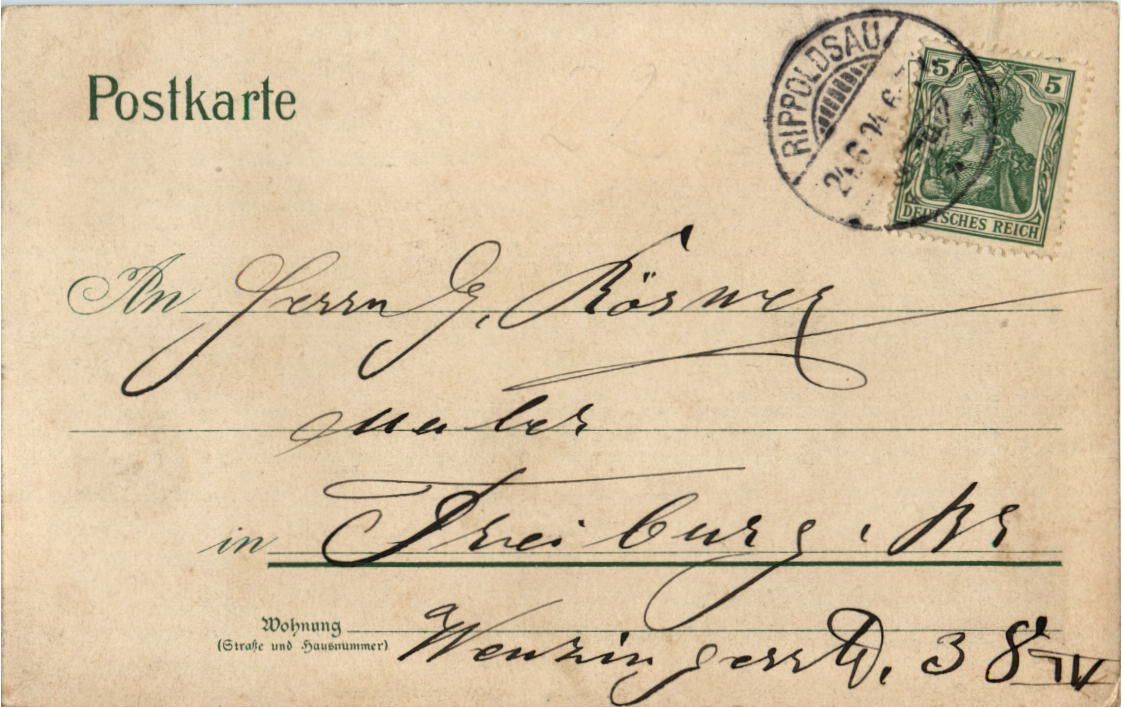 Postkarte
RIPPOLDSAU
24.6.04.6
5 5
DEUTSCHES REICH
An Herrn G. Rösner
Maler
in Freiburg i. Br
Wohnung
(Straße und Hausnummer)
Wenzingerstr. 38 IV